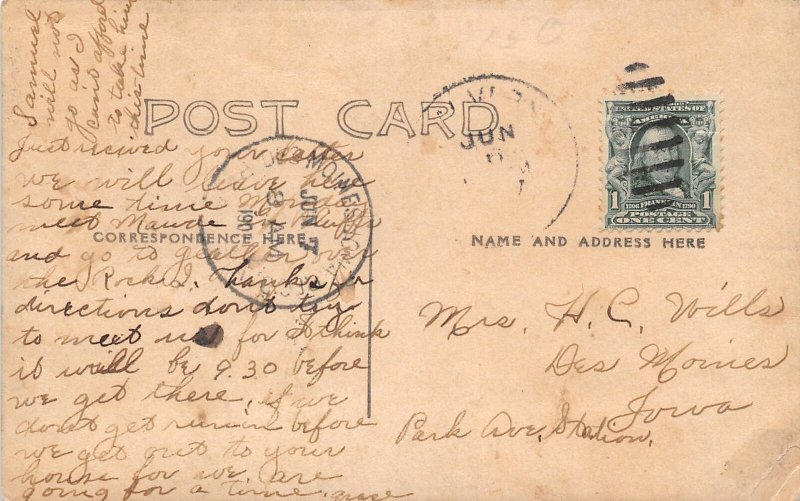 Samuel
will not
go as I
cant afford
to take him
this time
POST CARD
Just recived your letter
we will leave here
some time Monday
meet Maude in Bluffs
and go to geather over
the Rock I. Thanks for
directions dont try
to meet us for I think
it will be 9.30 before
we get there, if we
dont get run in before
we get out to your
house for we are
going for a time
CORRESPONDENCE HERE
DES MOINES, IOWA
JUN 7
9 AM
190
JUN
UNITED STATES OF
AMERICA
1 1706 FRANKLIN 1790 1
POSTAGE
ONE CENT
NAME AND ADDRESS HERE
Mrs. H. C. Wills
Des Moines
Iowa
Park Ave. Station.